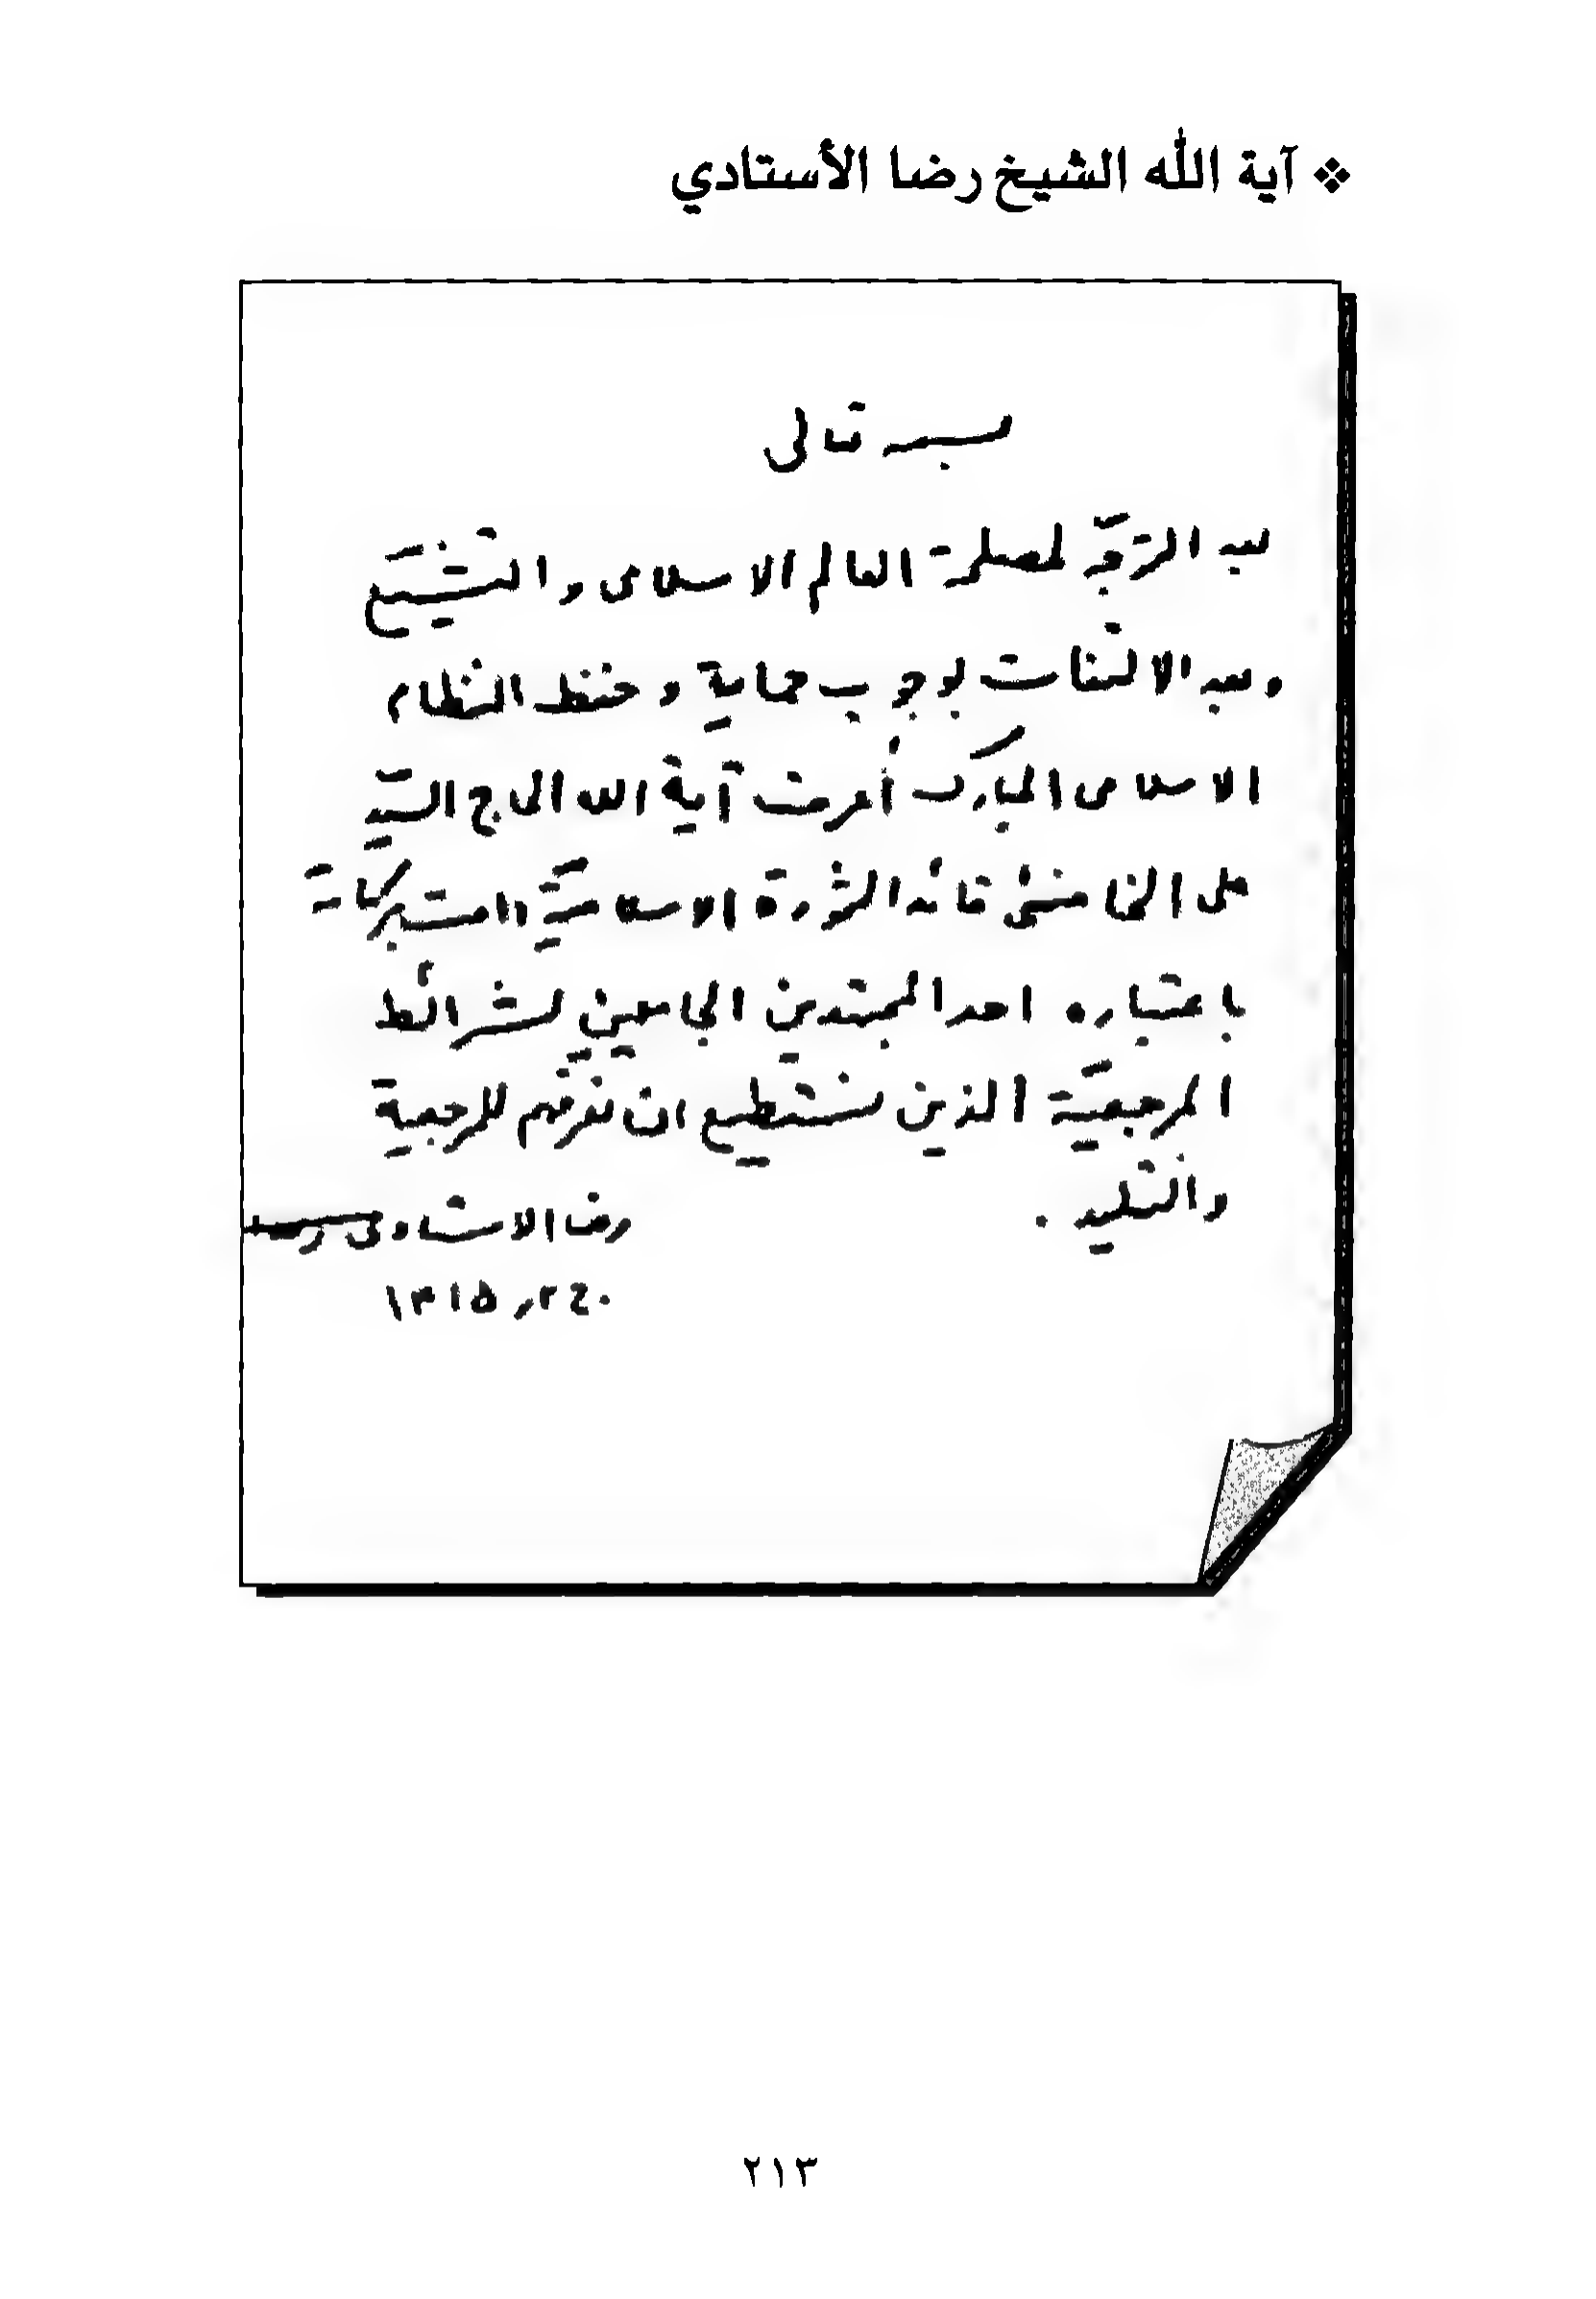 ❖ آية الله الشيخ رضا الأستادي
بسمه تعالى
بعد التوجّه لمصلحة العالم الاسلامى والتشيّع
وبعد الالتفات بوجوب حماية وحفظ النظام
الاسلامى المبارك أعرف آية الله الحاج السيّد
على الخامنئى قائد الثورة الاسلاميّة دامت بركاته
باعتباره احد المجتهدين الجامعين لشرائط
المرجعيّة الذين نستطيع ان نعرّفهم للمرجعية
والتقليد .
رضا الاستادى
١٣١٥
٢١٣